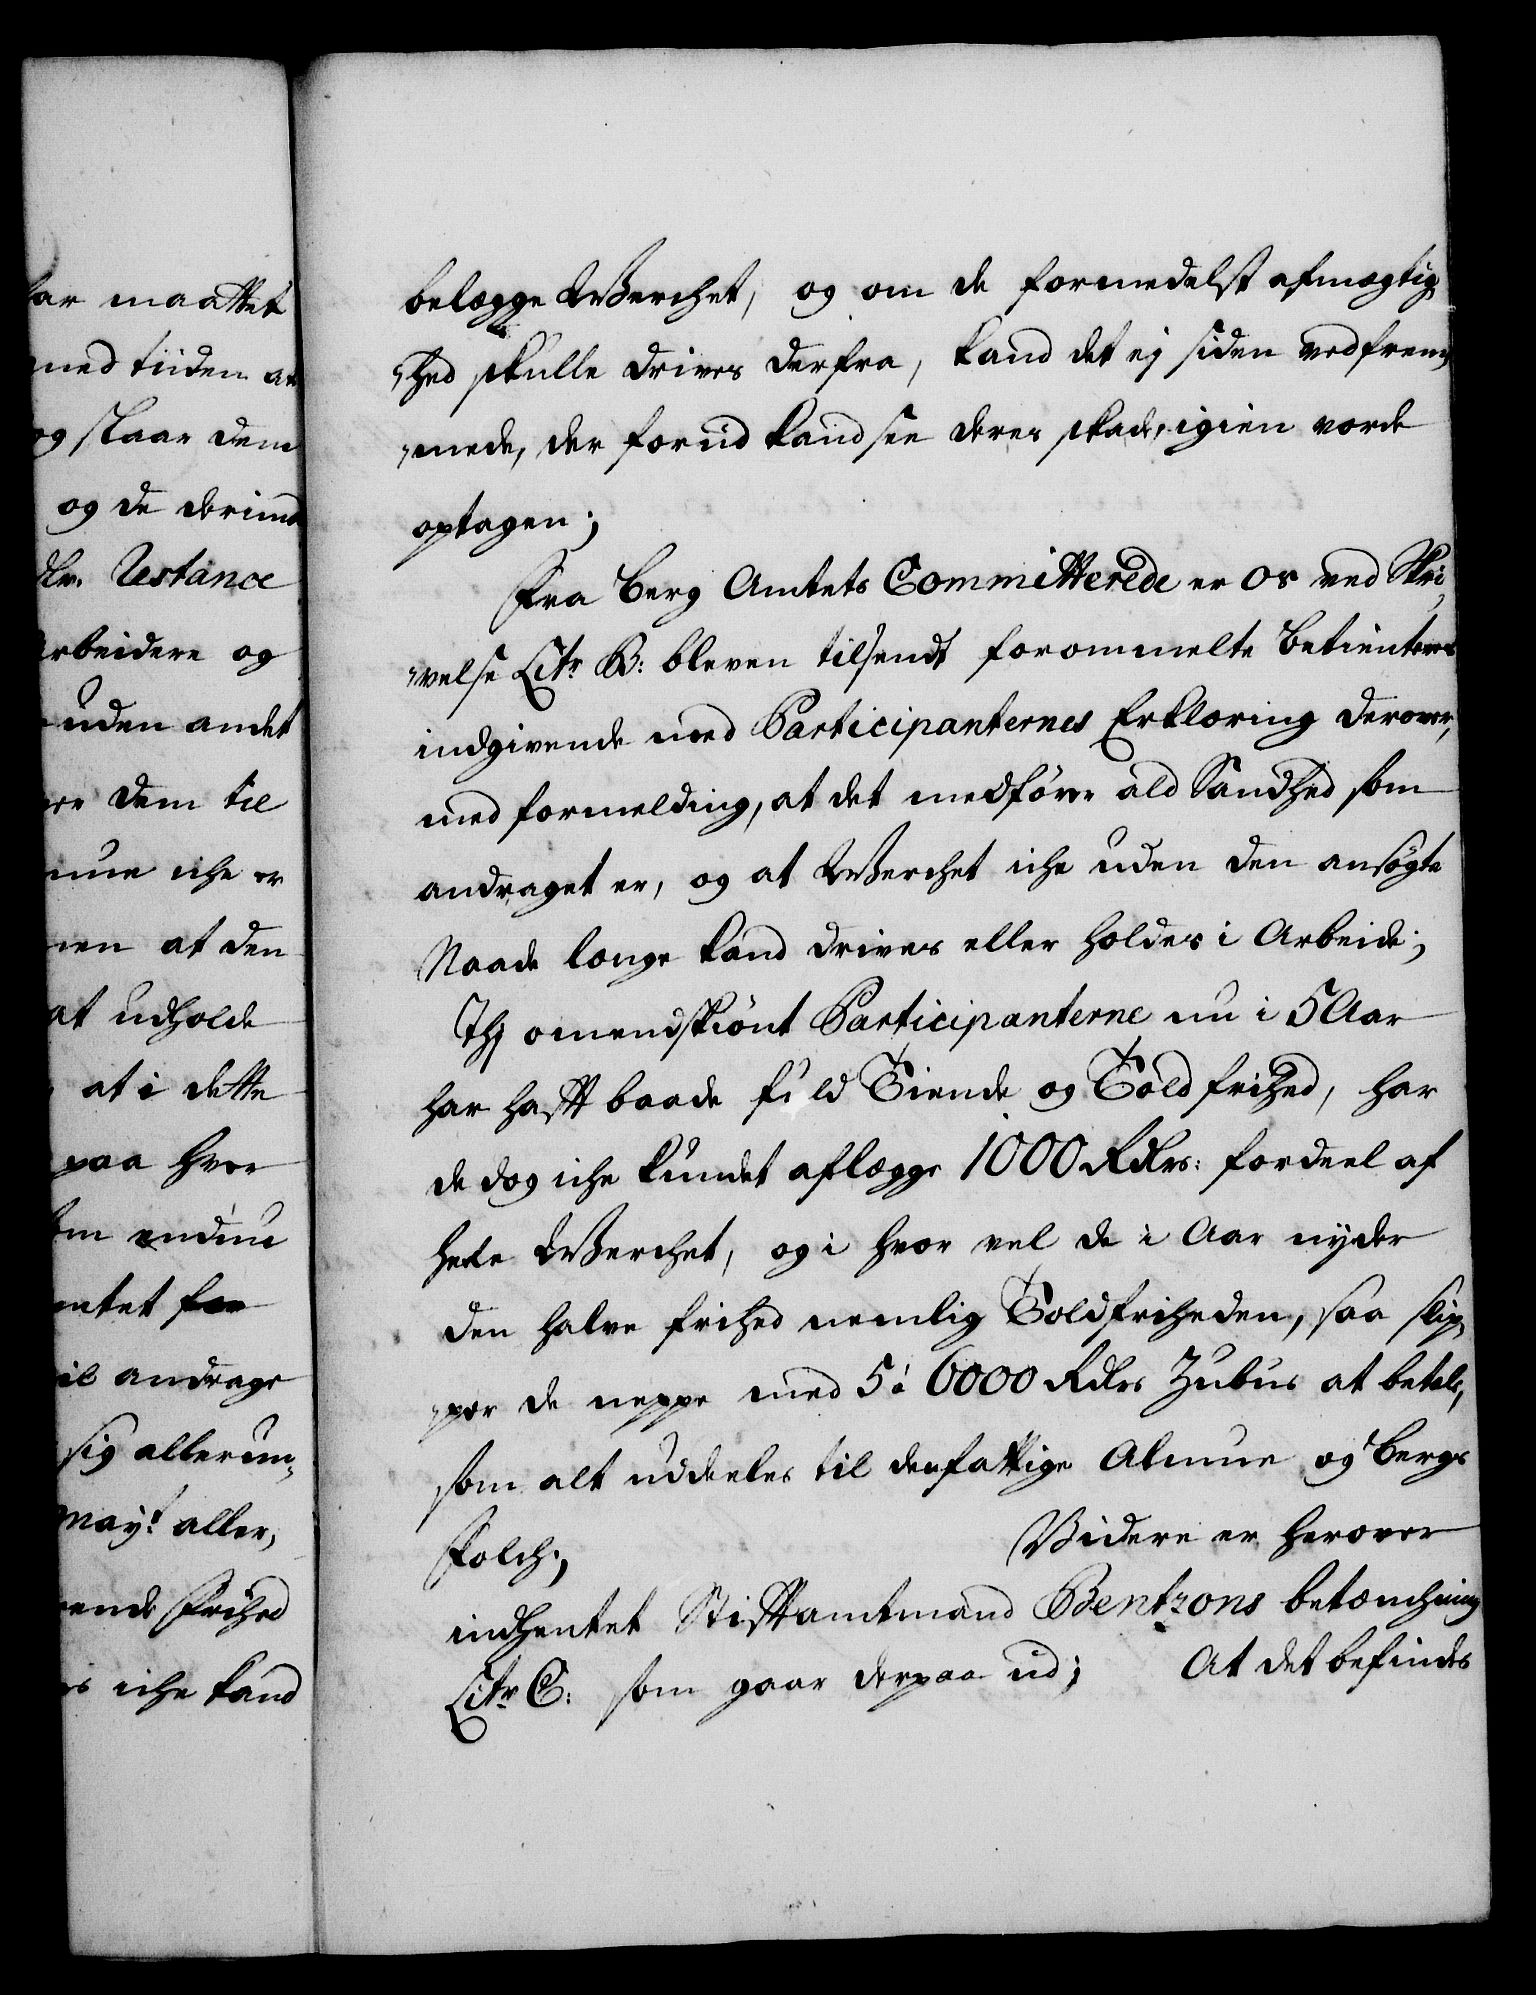 ar maattet
med tiiden at
og slaar dem
og de derimod
dlr. Restance
arbeidere og
uden andet
dem til
iche er
men at den
at udholde
at i dette
paa hvor
endnu
ntet for
il andrage
sig allerun-
Mayt. aller,
ende Frihed
iche kand
belægge Werchet, og om de formedelst afmægtig-
-hed skulle drives derfra, kand det ej siden ved frem-
-mede, der forud kand see deres skade, igien vorde
optagen;
Fra Berg Amtets Committerede er os ved Skri-
-velse Litr. B: bleven tilsendt forommelte Betienteres
indgivende med Participanternes Erklæring derover,
med formelding, at det medfører ald Sandhed som
andraget er, og at Werchet iche uden den ansøgte
Naade længe kand drives eller holdes i Arbeide;
Thj omendskiønt Participanterne nu i 5 Aar
har hafft baade fuld Tiende og Told frihed, har
de dog iche kundet aflægge 1000 Rdlrs: fordeel af
hele Werchet, og i hvor vel de i Aar nyder
den halve frihed nemlig Toldfriheden, saa slip-
-per de neppe med 5 à 6000 Rdlrs Zubus at betale,
som alt uddeeles til den fattige Almue og Bergs
Folch; Videre er herover
indhentet Stifftamtmand Bentzons betænchning
Litr C: som gaar derpaa ud; At det befindes